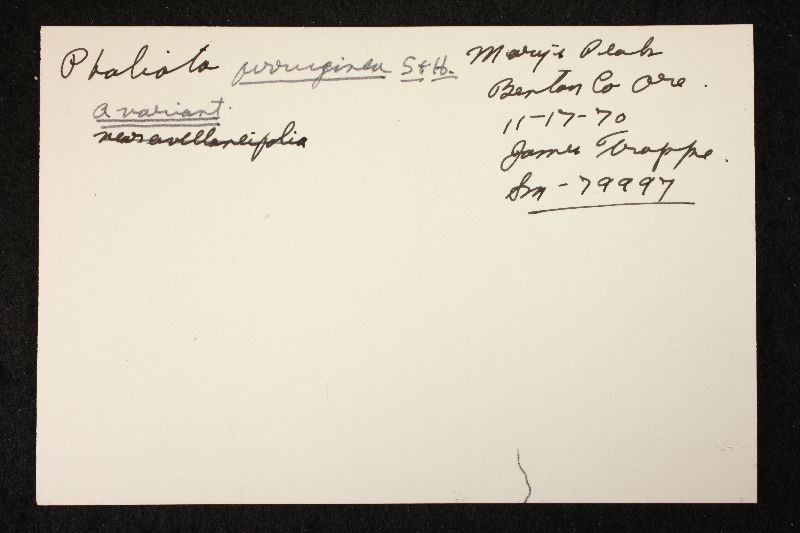 Pholiota ferruginea S+H.
a variant.
near avellaneifolia
Mary's Peak
Benton Co Ore.
11-17-70
James Trappe.
Sm-79997